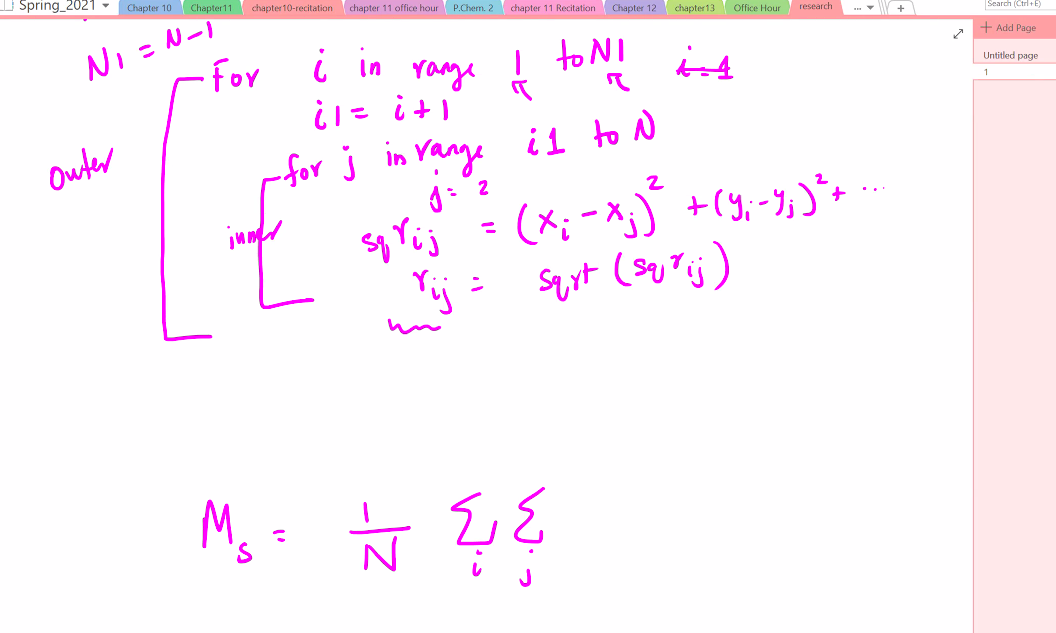 Spring_2021 Chapter 10 Chapter11 chapter10-recitation chapter 11 office hour P.Chem. 2 chapter 11 Recitation Chapter 12 chapter13 Office Hour research ... +
Search (Ctrl+E)
+ Add Page
Untitled page
1
N1 = N-1
for i in range 1 to N1 i=1
i1 = i+1
outer
for j in range i1 to N
j= 2
inner
sqrij = (xi - xj)² + (yi - yj)² + ...
rij = sqrt (sqrij)
Ms = 1/N Σi Σj